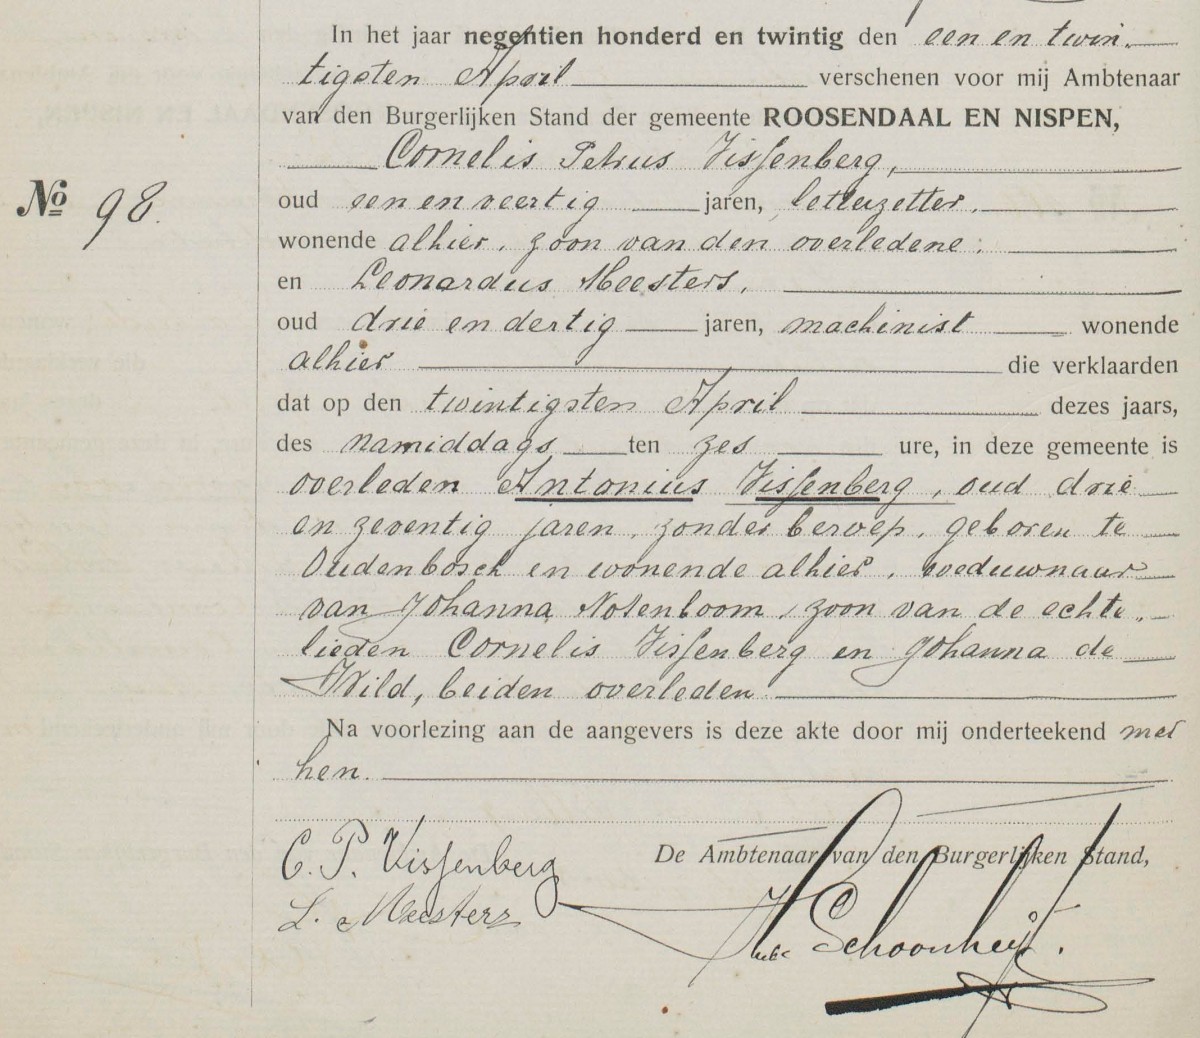 In het jaar negentien honderd en twintig den een en twin-
tigsten April verschenen voor mij Ambtenaar
van den Burgerlijken Stand der gemeente ROOSENDAAL EN NISPEN,
Cornelis Petrus Vissenberg,
No 98.
oud een en veertig jaren, letterzetter,
wonende alhier, zoon van den overledene;
en Leonardus Meesters,
oud drie en dertig jaren, machinist wonende
alhier die verklaarden
dat op den twintigsten April dezes jaars,
des namiddags ten zes ure, in deze gemeente is
overleden Antonius Vissenberg, oud drie
en zeventig jaren, zonder beroep, geboren te
Oudenbosch en wonende alhier, weduwnaar
van Johanna Notenboom, zoon van de echte-
lieden Cornelis Vissenberg en Johanna de
Wild, beiden overleden
Na voorlezing aan de aangevers is deze akte door mij onderteekend met
hen.
De Ambtenaar van den Burgerlijken Stand,
C. P. Vissenberg
L. Meesters
Schoonheyt.